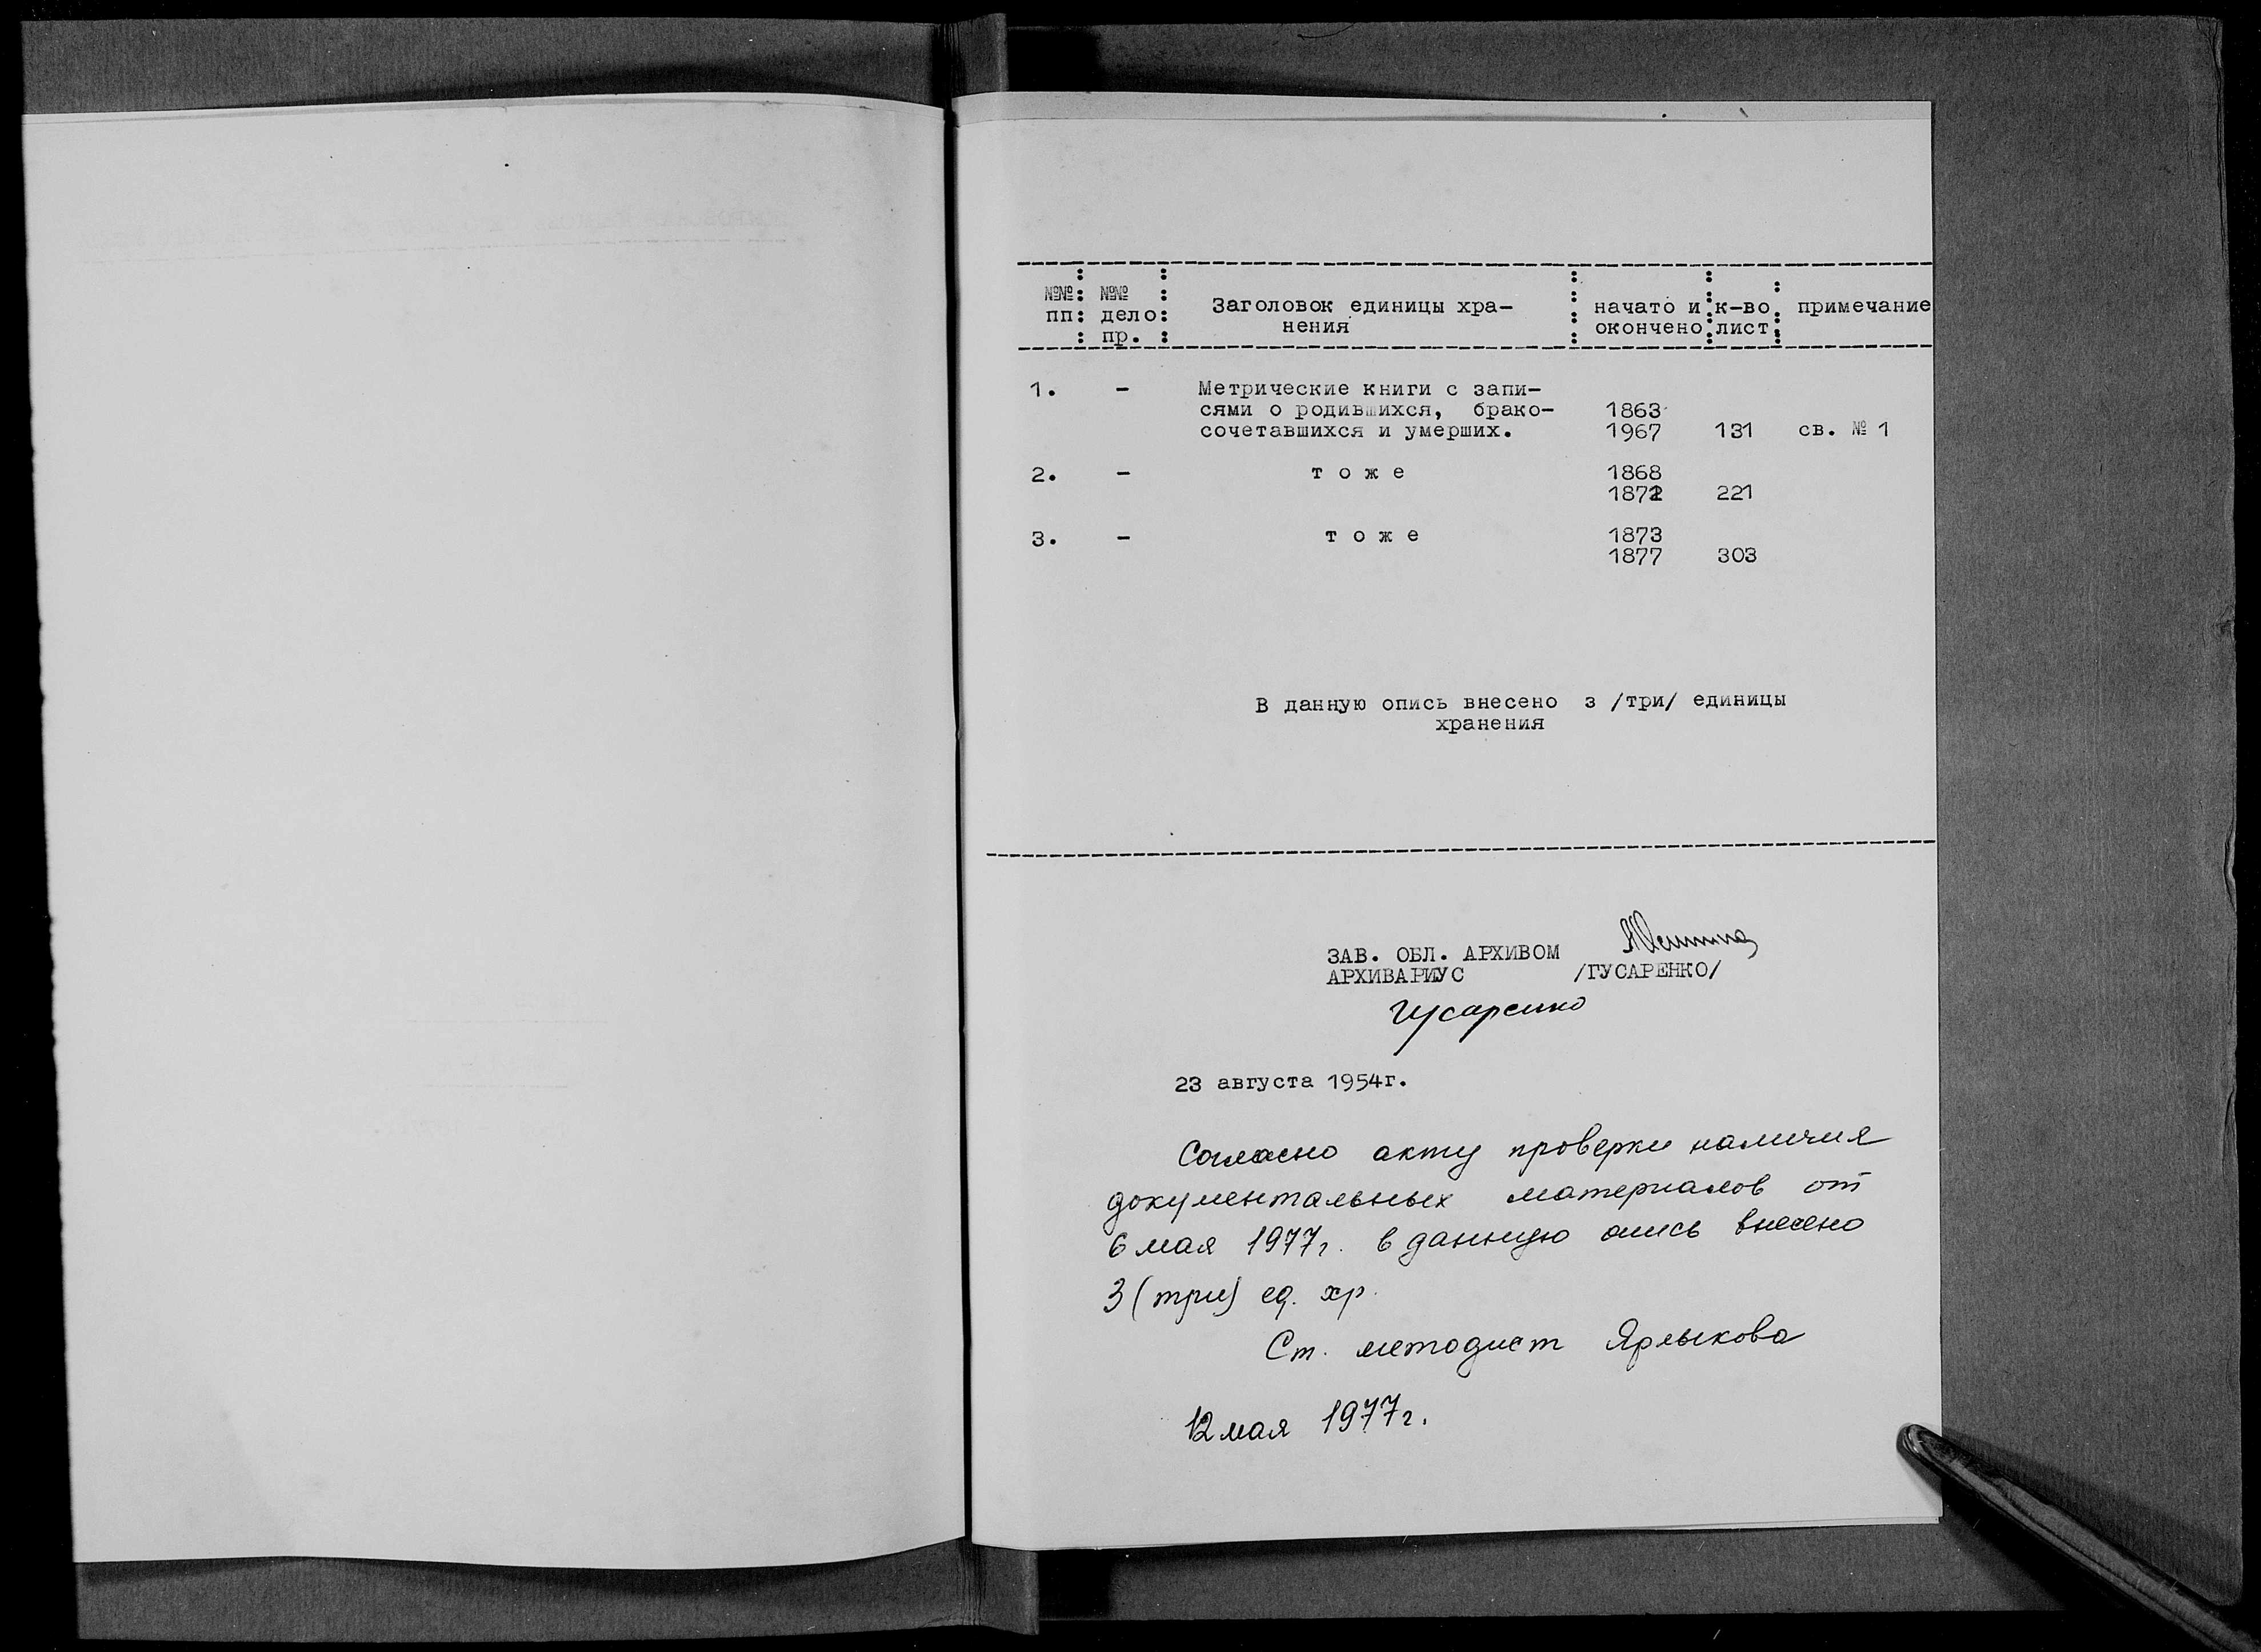 №№ №№
пп дело Заголовок единицы хра- начато и к-во примечание
пр. нения окончено лист
1. – Метрические книги с запи-
сями о родившихся, брако- 1863
сочетавшихся и умерших. 1967 131 св. № 1
2. – т о ж е 1868
1872 221
3. – т о ж е 1873
1877 303
В данную опись внесено з /три/ единицы
хранения
ЗАВ. ОБЛ. АРХИВОМ
АРХИВАРИУС /ГУСАРЕНКО/
Гусаренко
23 августа 1954г.
Согласно акту проверки наличия
документальных материалов от
6 мая 1977г. в данную опись внесено
3 (три) ед. хр.
Ст. методист Ярлыкова
12 мая 1977г.